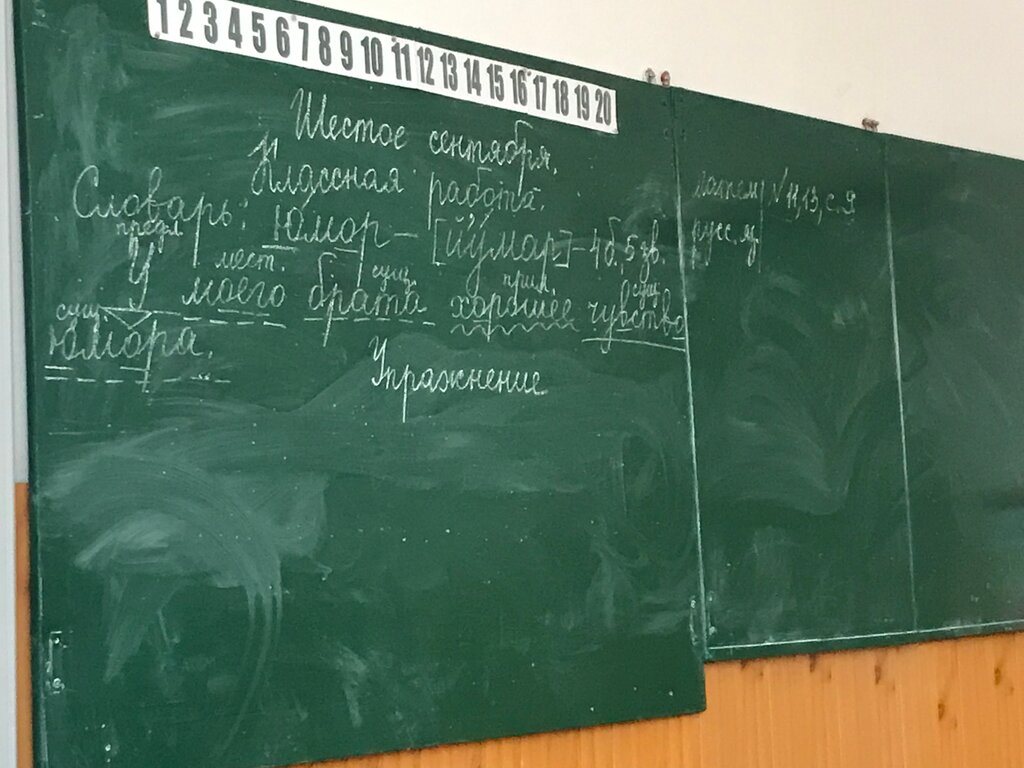 1 2 3 4 5 6 7 8 9 10 11 12 13 14 15 16 17 18 19 20
Шестое сентября.
Классная работа.
Словарь: юмор – [й'умар] – 4 б., 5 зв.
предл. мест. сущ. прил. сущ.
У моего брата хорошее чувство
сущ.
юмора.
Упражнение
матем №11,13, с.9
русс. яз